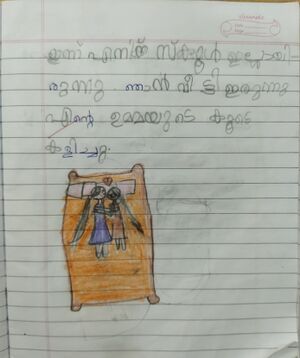 ഇന്ന് എനിക്ക് സ്കൂൾ ഇല്ലായി-
രുന്നു ഞാൻ വീട്ടി ഇരുന്നു
എന്റെ ഉമ്മയുടെ കൂടെ
കളിച്ചു.